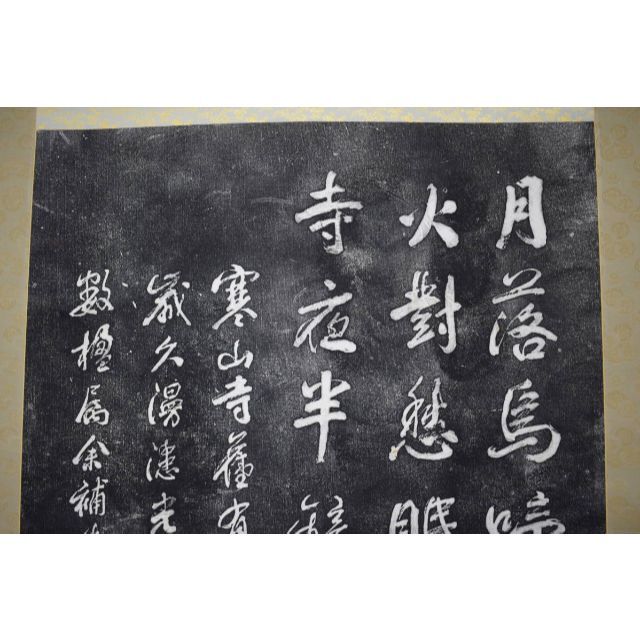 月落烏啼
火對愁眠
寺夜半鐘
寒山寺舊有
歲久漫漶光
數楹属余補